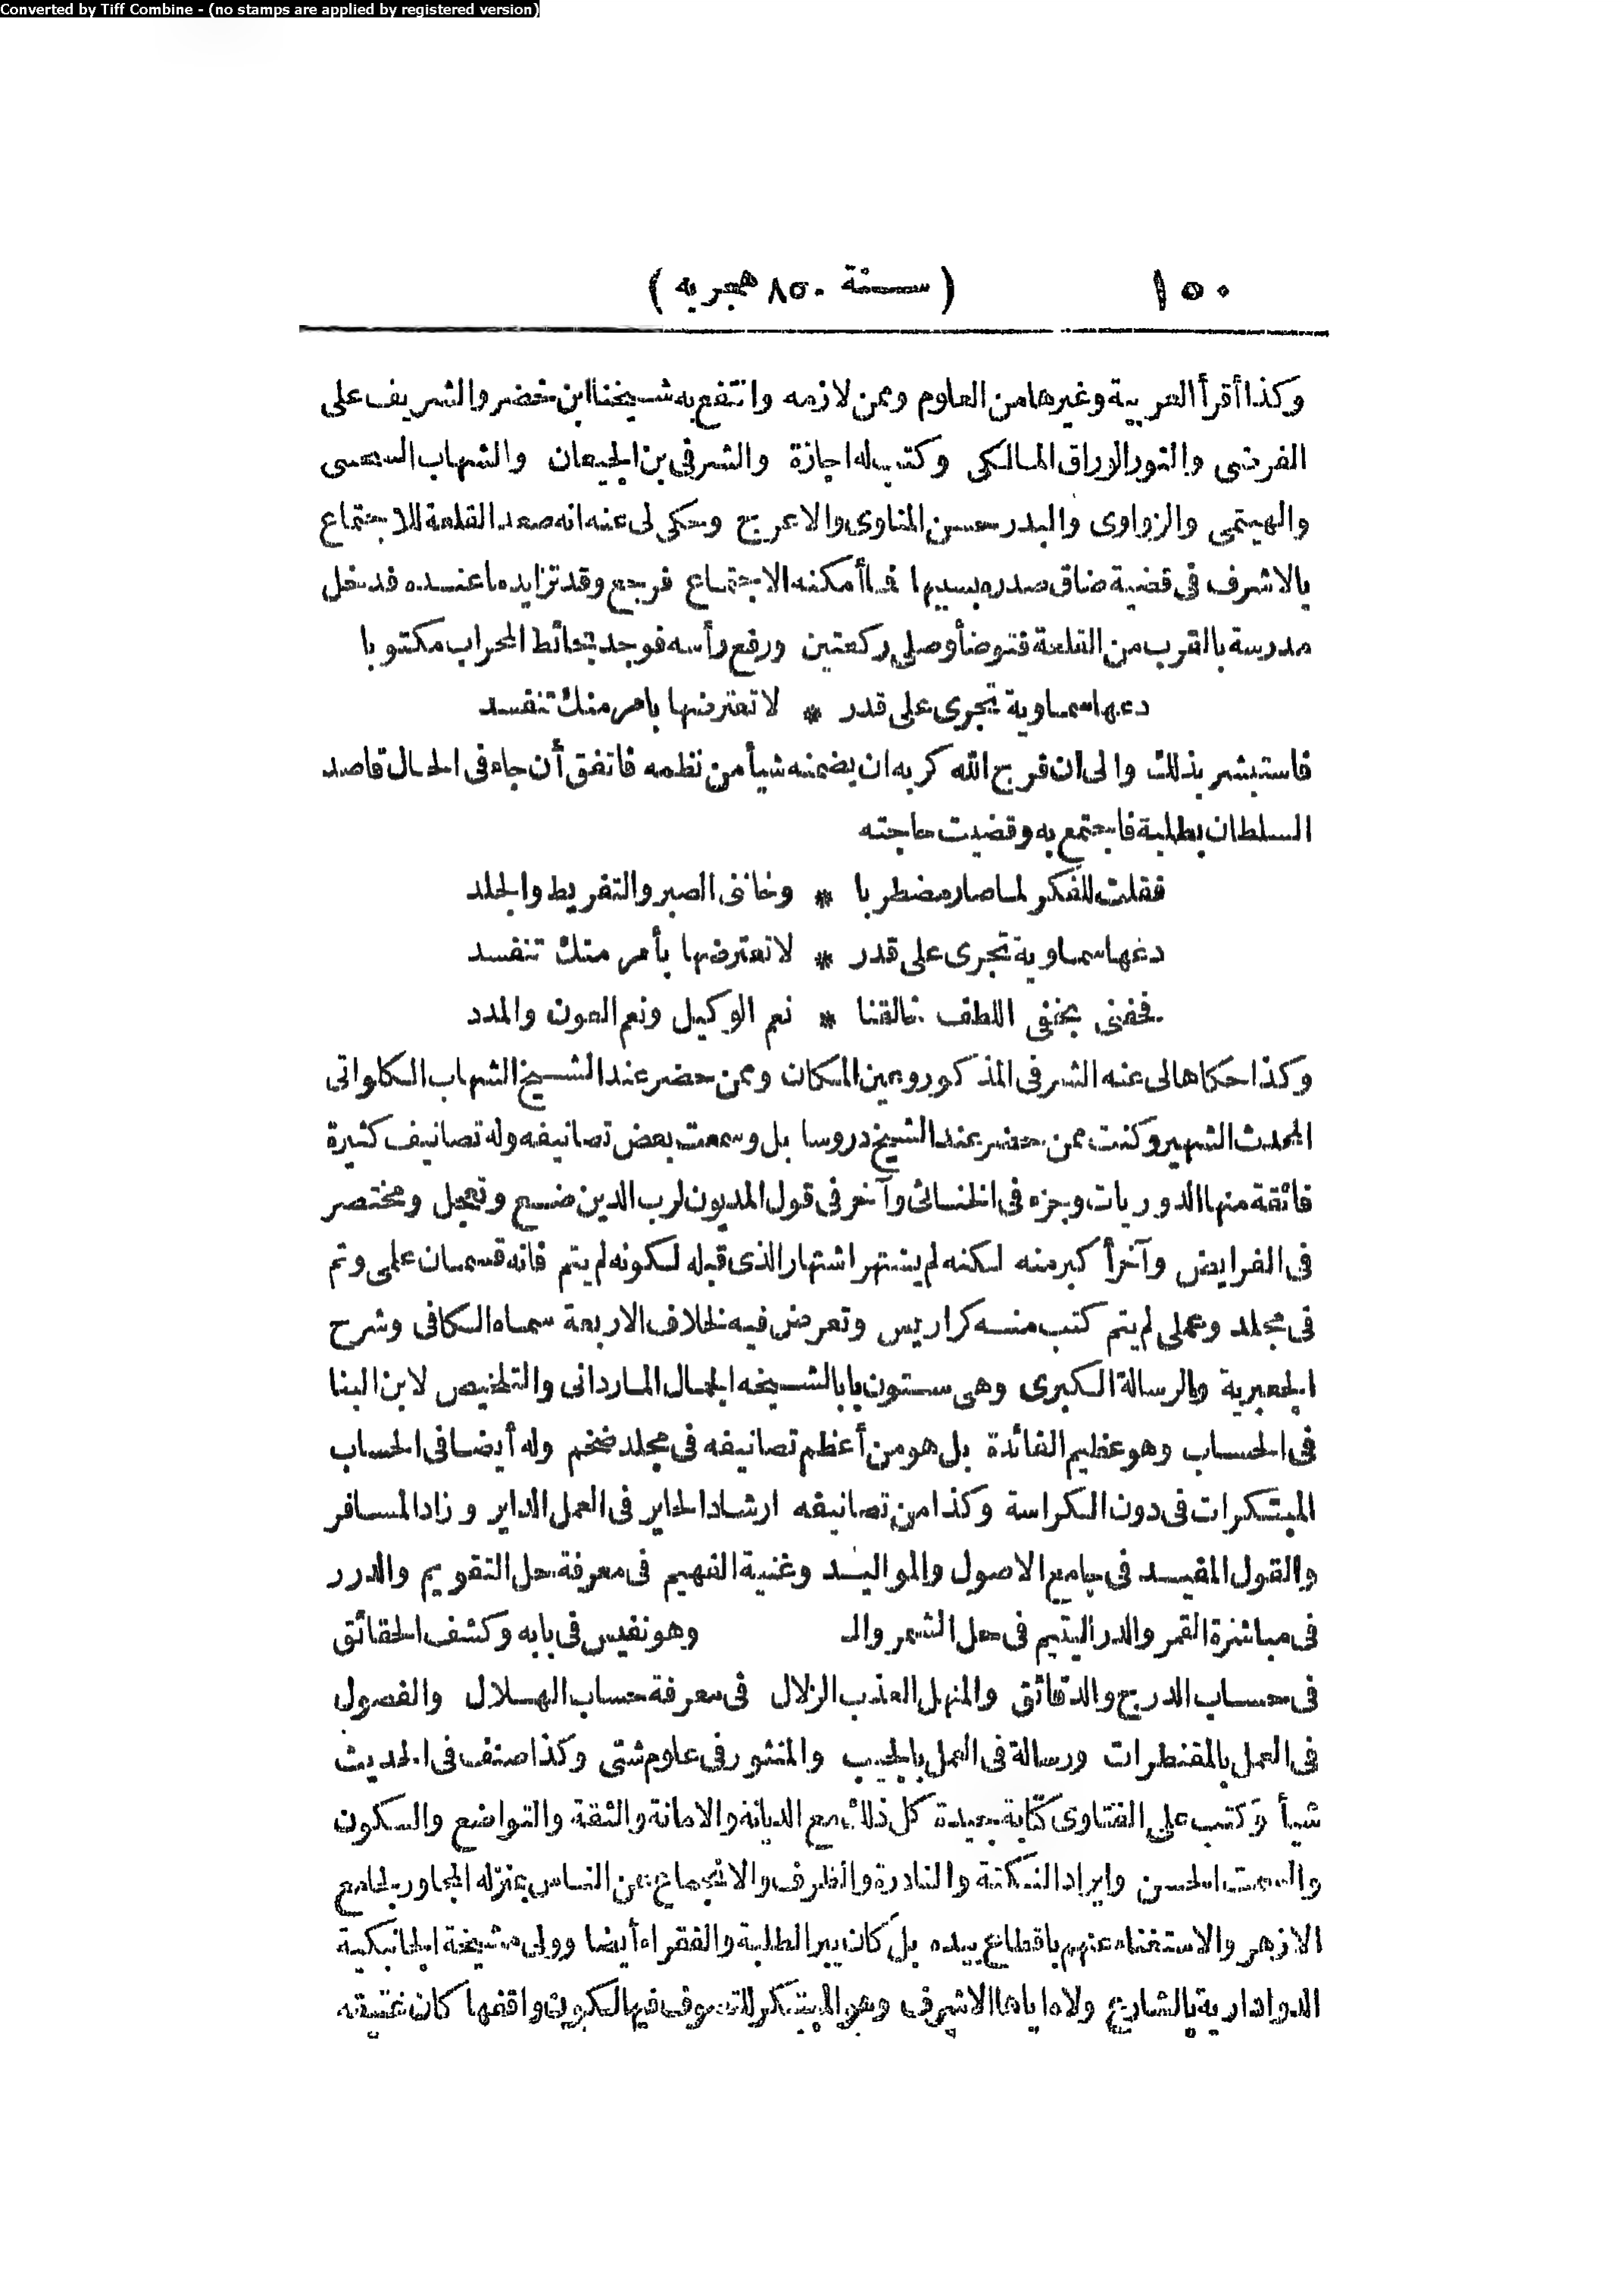 Converted by Tiff Combine - (no stamps are applied by registered version)
١٥٠ (سنة ٨٥٠ هجريه)
وكذا أقرأ العربية وغيرها من العلوم وممن لازمه وانتفع به شيخنا ابن خضر والشريف على
الفرضى والنور الوراق المالكى وكتب له اجازة والشرفى بن الجيعان والشهاب
والهيتمى والزواوى والبدر حسن المناوى والاعرج وحكى لى عنه انه صعد القلعة للاجتماع
بالاشرف فى قضية ضاق صدره بسببها فما أمكنه الاجتماع فرجع وقد تزايد ما عنده فدخل
مدرسة بالقرب من القلعة فتوضأ وصلى ركعتين ورفع رأسه فوجد بحائط المحراب مكتوبا
دعها سماوية تجرى على قدر * لا تعترضها بامر منك تنفسد
فاستبشر بذلك والى ان فرج الله كربه ان يضمنه شيأ من نظمه فاتفق أن جاء فى الحال قاصد
السلطان بطلبة فاجتمع به وقضيت حاجته
فقلت للفكر لما صار مضطربا * وخاننى الصبر والتفريط والجلد
دعها سماوية تجرى على قدر * لا تعترضها بأمر منك تنفسد
فحفنى بخفى اللطف خالقنا * نعم الوكيل ونعم العون والمدد
وكذا حكاها لى عنه الشرفى المذكور وعين المكان وممن حضر عند الشيخ الشهاب الكلوتاتى
المحدث الشهير وكنت ممن حضر عند الشيخ دروسا بل وسمعت بعض تصانيفه وله تصانيف كثيرة
فائقة منها الدوريات وجزء فى الخنساثى وآخر فى قول المديون لرب الدين ضع وتعجل ومختصر
فى الفرايض وآخر أكبر منه لكنه لم يشتهر اشتهار الذى قبله لكونه لم يتم فانه قسمان علمى وتم
فى مجلد وعملى لم يتم كتب منه كراريس وتعرض فيه لخلاف الاربعة سماه الكافى وشرح
الجعبرية والرسالة الكبرى وهى ستون بابا لشيخه الجمال الماردانى والتلخيص لابن البنا
فى الحساب وهو عظيم الفائدة بل هو من أعظم تصانيفه فى مجلد ضخم وله أيضا فى الحساب
المبتكرات فى دون الكراسة وكذا من تصانيفه ارشاد الحاير فى العمل الداير وزاد المسافر
والقول المفيد فى جامع الاصول والمواليد وغنية الفهيم فى معرفة حل التقويم والدرر
فى مباشرة القمر والدر اليتيم فى حل الشمر والـ وهو نفيس فى بابه وكشف الحقائق
فى حساب الدرج والدقائق والمنهل العذب الزلال فى معرفة حساب الهلال والفصول
فى العمل بالمقنطرات ورسالة فى العمل بالجيب والمنثور فى علوم شتى وكذا صنف فى الحديث
شيأ وكتب على الفتاوى كتابة جيدة كل ذلك مع الديانة والامانة والثقة والتواضع والسكون
والسمت الحسن وايراد النكتة والنادرة والظرف والانجماع عن الناس بمنزله المجاور لجامع
الازهر والاستغناء عنهم باقطاع بيده بل كان يبر الطلبة والفقراء أيضا وولى مشيخة الجانبكية
الدوادارية بالشارع ولاه اياها الاشرف وهو المبتكر للتصوف فيها لكون واقفها كان عتيقه